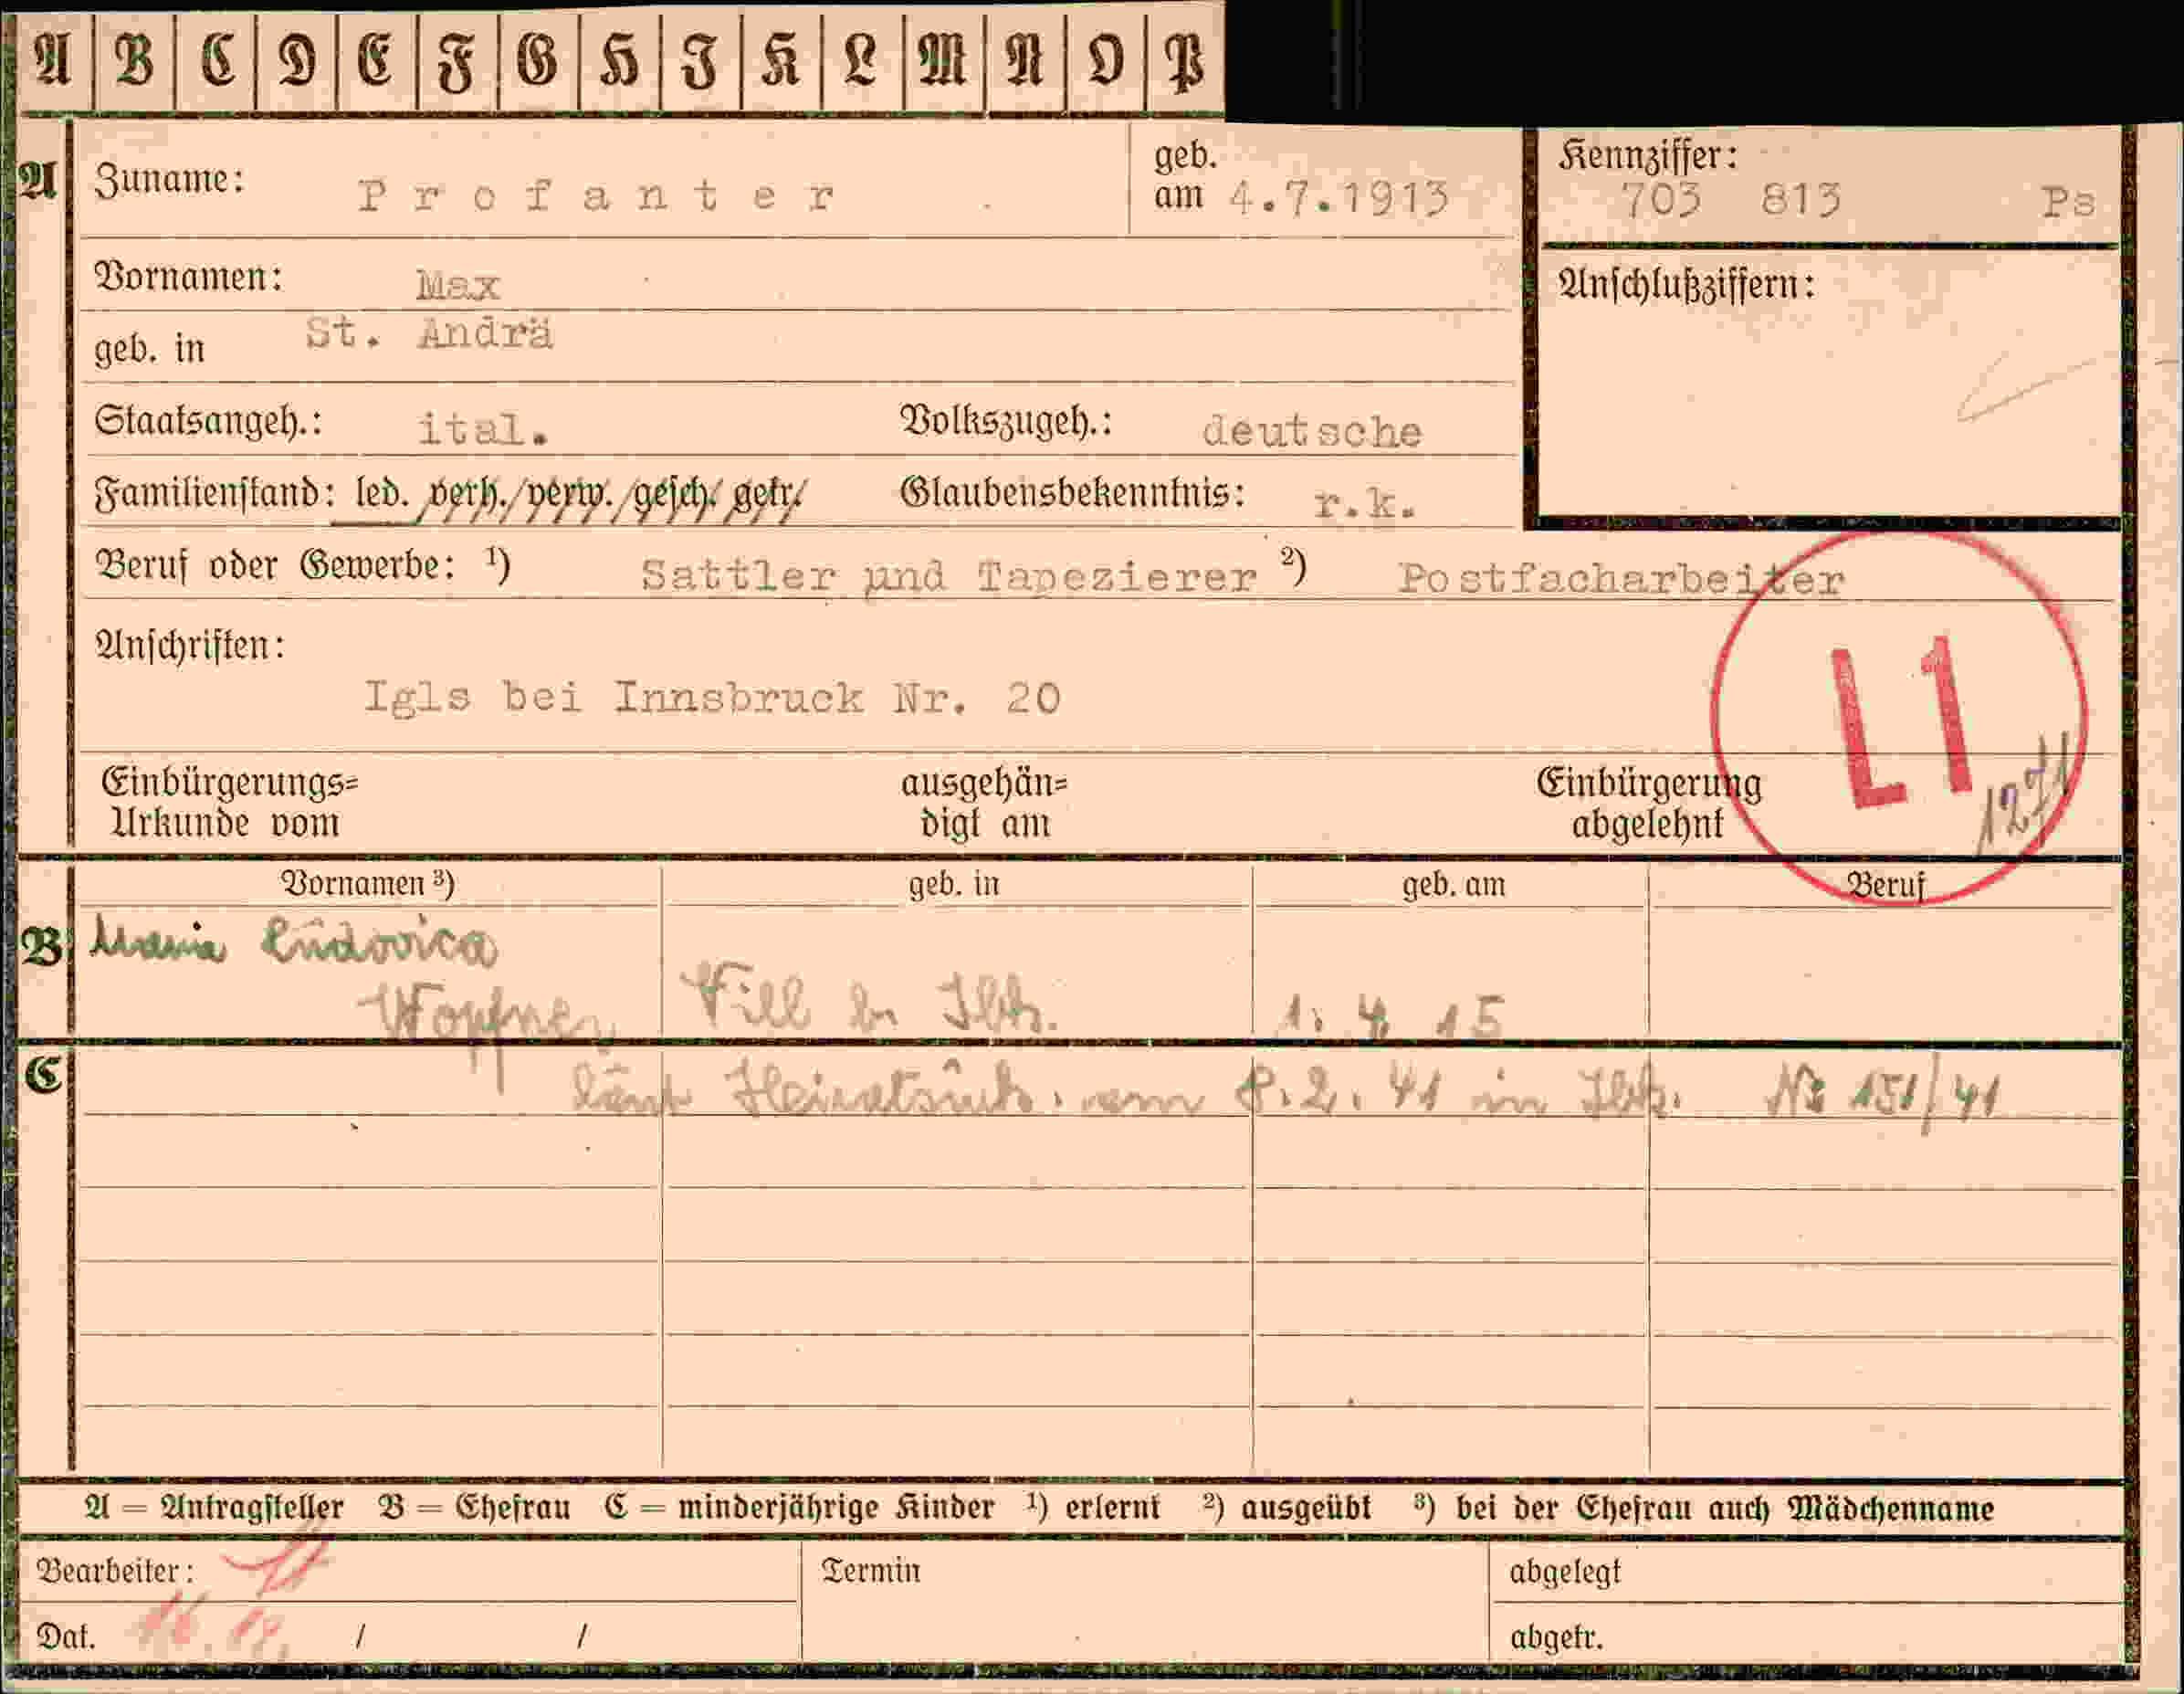 A B C D E F G H I K L M N O P
A Zuname: Profanter geb. am 4.7.1913
Kennziffer: 703 813 Ps
Vornamen: Max
Anschlußziffern:
geb. in St. Andrä
Staatsangeh.: ital. Volkszugeh.: deutsche
Familienstand: led. verh./verw./gesch./getr. Glaubensbekenntnis: r.k.
Beruf oder Gewerbe: 1) Sattler und Tapezierer 2) Postfacharbeiter
Anschriften:
Igls bei Innsbruck Nr. 20
L1
1271
Einbürgerungs=
Urkunde vom
ausgehän=
digt am
Einbürgerung
abgelehnt
Vornamen 3) geb. in geb. am Beruf
B Maria Ludovica
Wopfner Vill b. Ibk. 1. 4. 15
C laut Heiratsurk. vom 8.2.41 in Ibk. No 151/41
A = Antragsteller B = Ehefrau C = minderjährige Kinder 1) erlernt 2) ausgeübt 3) bei der Ehefrau auch Mädchenname
Bearbeiter: Termin abgelegt
Dat. / / abgetr.